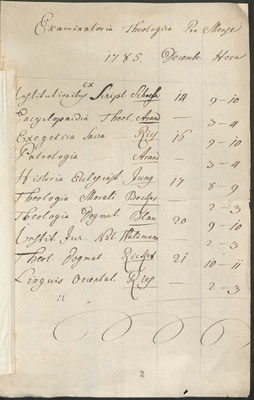 Examinatoria Theologica Pro Mense
1785. Decembr. Hora
Institutionibus ex Script. 14 9-10
Encyclopaidia Theol. 3-4
Exegetica Sacra Ries 16 9-10
Patrologia 3-4
Historia Eccles. Jung 17 8-9
Theologia Morali Becker 2-3
Theologia Dogmat. Blau 20 9-10
Instit. Jur. Nat. 2-3
Theol. Dogmat. 21 10-11
Linguis Oriental. Ries 2-3
2